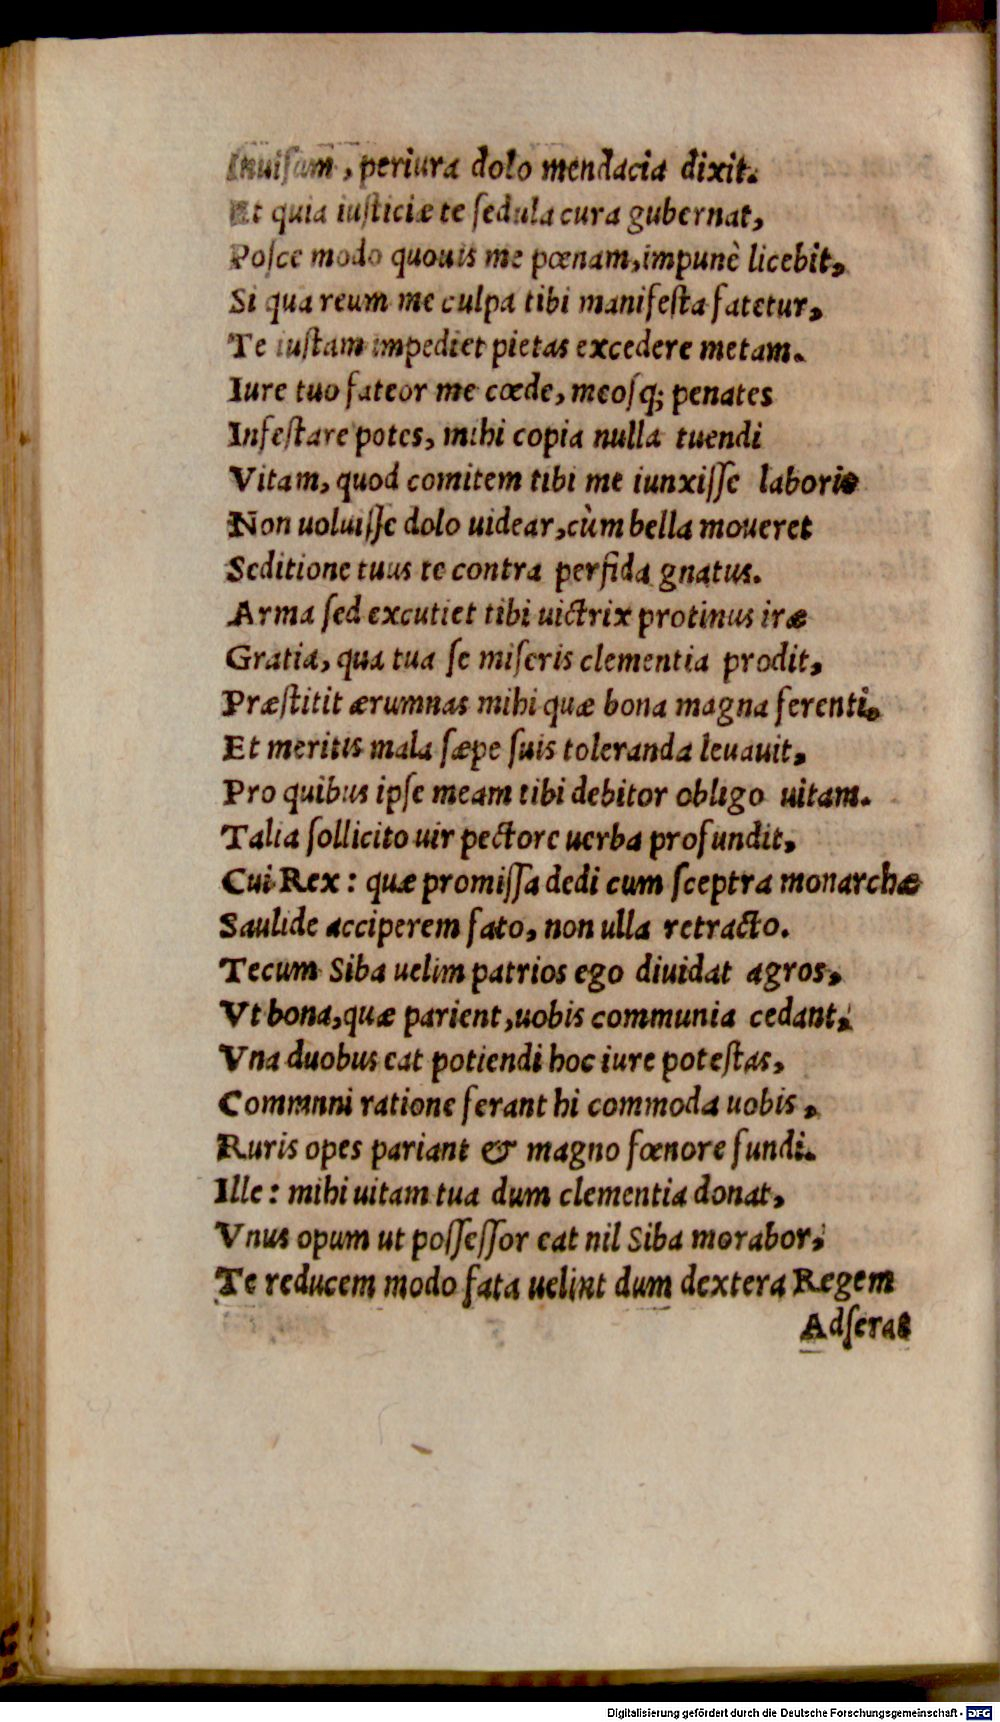 Inuisam, periura dolo mendacia dixit.
Et quia iusticiæ te ſedula cura gubernat,
Poſce modo quouis me pœnam, impunè licebit,
Si qua reum me culpa tibi manifeſta fatetur,
Te iuſtam impediet pietas excedere metam.
Iure tuo fateor me cœde, meoſq; penates
Infeſtare potes, mihi copia nulla tuendi
Vitam, quod comitem tibi me iunxiſſe laboris
Non uoluiſſe dolo uidear, cùm bella moueret
Seditione tuus te contra perfida gnatus.
Arma ſed excutiet tibi uictrix protinus iræ
Gratia, qua tua ſe miſeris clementia prodit,
Præſtitit ærumnas mihi quæ bona magna ferenti.
Et meritis mala ſæpe ſuis toleranda leuauit,
Pro quibus ipſe meam tibi debitor obligo uitam.
Talia ſollicito uir pectore uerba profundit,
Cui Rex: quæ promiſſa dedi cum ſceptra monarchæ
Saulide acciperem fato, non ulla retracto.
Tecum Siba uelim patrios ego diuidat agros,
Vt bona, quæ parient, uobis communia cedant,
Vna duobus eat potiendi hoc iure poteſtas,
Commnni ratione ferant hi commoda uobis,
Ruris opes pariant & magno fœnore fundi.
Ille: mihi uitam tua dum clementia donat,
Vnus opum ut poſſeſſor eat nil Siba morabor,
Te reducem modo fata uelint dum dextera Regem
Adſerat
Digitalisierung gefördert durch die Deutsche Forschungsgemeinschaft - DFG